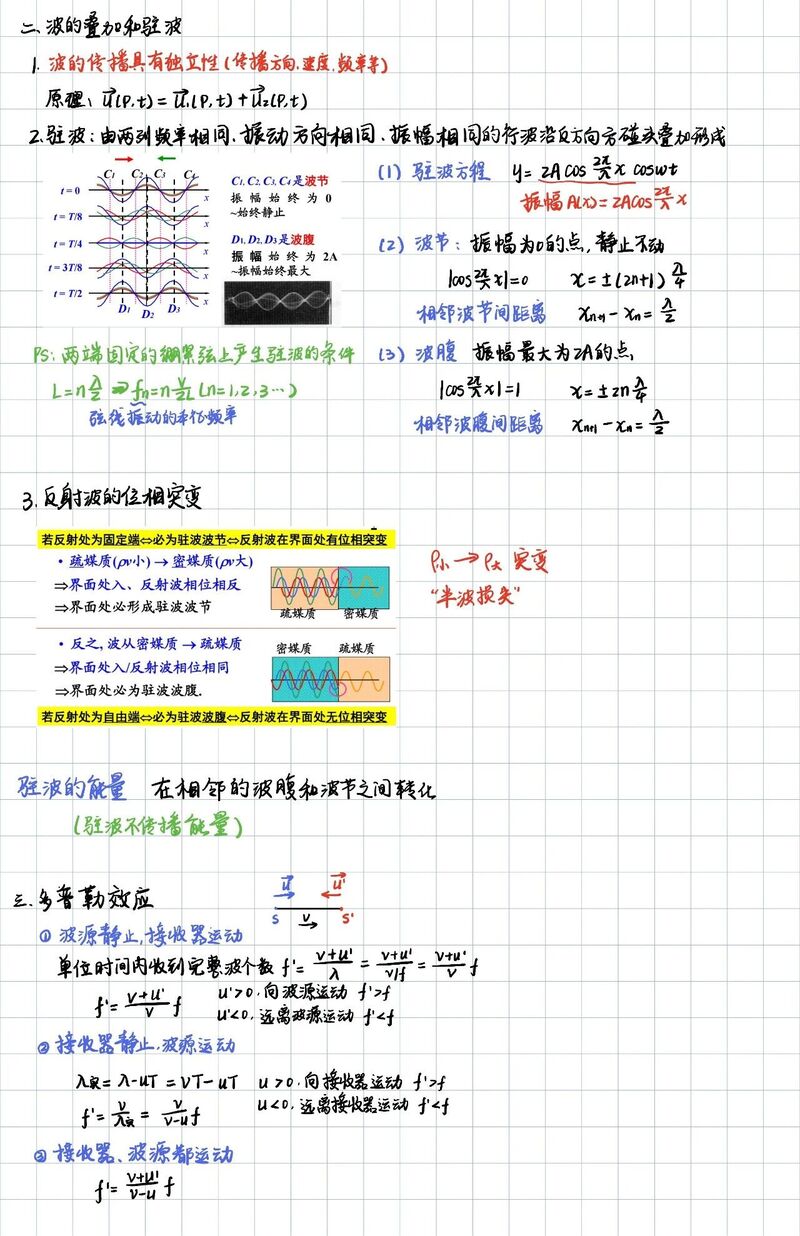 二、波的叠加和驻波
1. 波的传播具有独立性(传播方向、速度、频率等)
原理: u⃗(P,t) = u⃗₁(P,t) + u⃗₂(P,t)
2.驻波:由两列频率相同、振动方向相同、振幅相同的行波沿反方向碰头叠加形成
C₁ C₂ C₃ C₄
t = 0
t = T/8
t = T/4
t = 3T/8
t = T/2
x
x
D₁ D₂ D₃
C₁, C₂, C₃, C₄ 是波节
振幅始终为 0
~始终静止
D₁, D₂, D₃ 是波腹
振幅始终为 2A
~振幅始终最大
(1) 驻波方程 y = 2A cos 2π/λ x cos ωt
振幅 A(x) = 2A cos 2π/λ x
(2) 波节: 振幅为0的点, 静止不动
|cos 2π/λ x| = 0 x = ±(2n+1) λ/4
相邻波节间距离 xₙ₊₁ - xₙ = λ/2
PS: 两端固定的绷紧弦上产生驻波的条件
L = n λ/2 ⇒ fₙ = n v/2L (n=1,2,3…)
弦线振动的本征频率
(3) 波腹 振幅最大为2A的点
|cos 2π/λ x| = 1 x = ±2n λ/4
相邻波腹间距离 xₙ₊₁ - xₙ = λ/2
3.反射波的位相突变
若反射处为固定端⇔必为驻波波节⇔反射波在界面处有位相突变
• 疏媒质(ρv小) → 密媒质(ρv大)
⇒界面处入、反射波相位相反
⇒界面处必形成驻波波节
疏媒质 密媒质
ρ小 → ρ大 突变
“半波损失”
• 反之, 波从密媒质 → 疏媒质
⇒界面处入/反射波相位相同
⇒界面处必为驻波波腹.
密媒质 疏媒质
若反射处为自由端⇔必为驻波波腹⇔反射波在界面处无位相突变
驻波的能量 在相邻的波腹和波节之间转化
(驻波不传播能量)
三、多普勒效应
u⃗ u⃗'
S v S'
① 波源静止,接收器运动
单位时间内收到完整波个数 f' = (v+u')/λ = (v+u')/(v/f) = (v+u')/v f
f' = (v+u')/v f
u'>0, 向波源运动 f'>f
u'<0, 远离波源运动 f'<f
② 接收器静止,波源运动
λ实 = λ-uT = vT-uT
f' = v/λ实 = v/(v-u) f
u>0, 向接收器运动 f'>f
u<0, 远离接收器运动 f'<f
③ 接收器、波源都运动
f' = (v+u')/(v-u) f